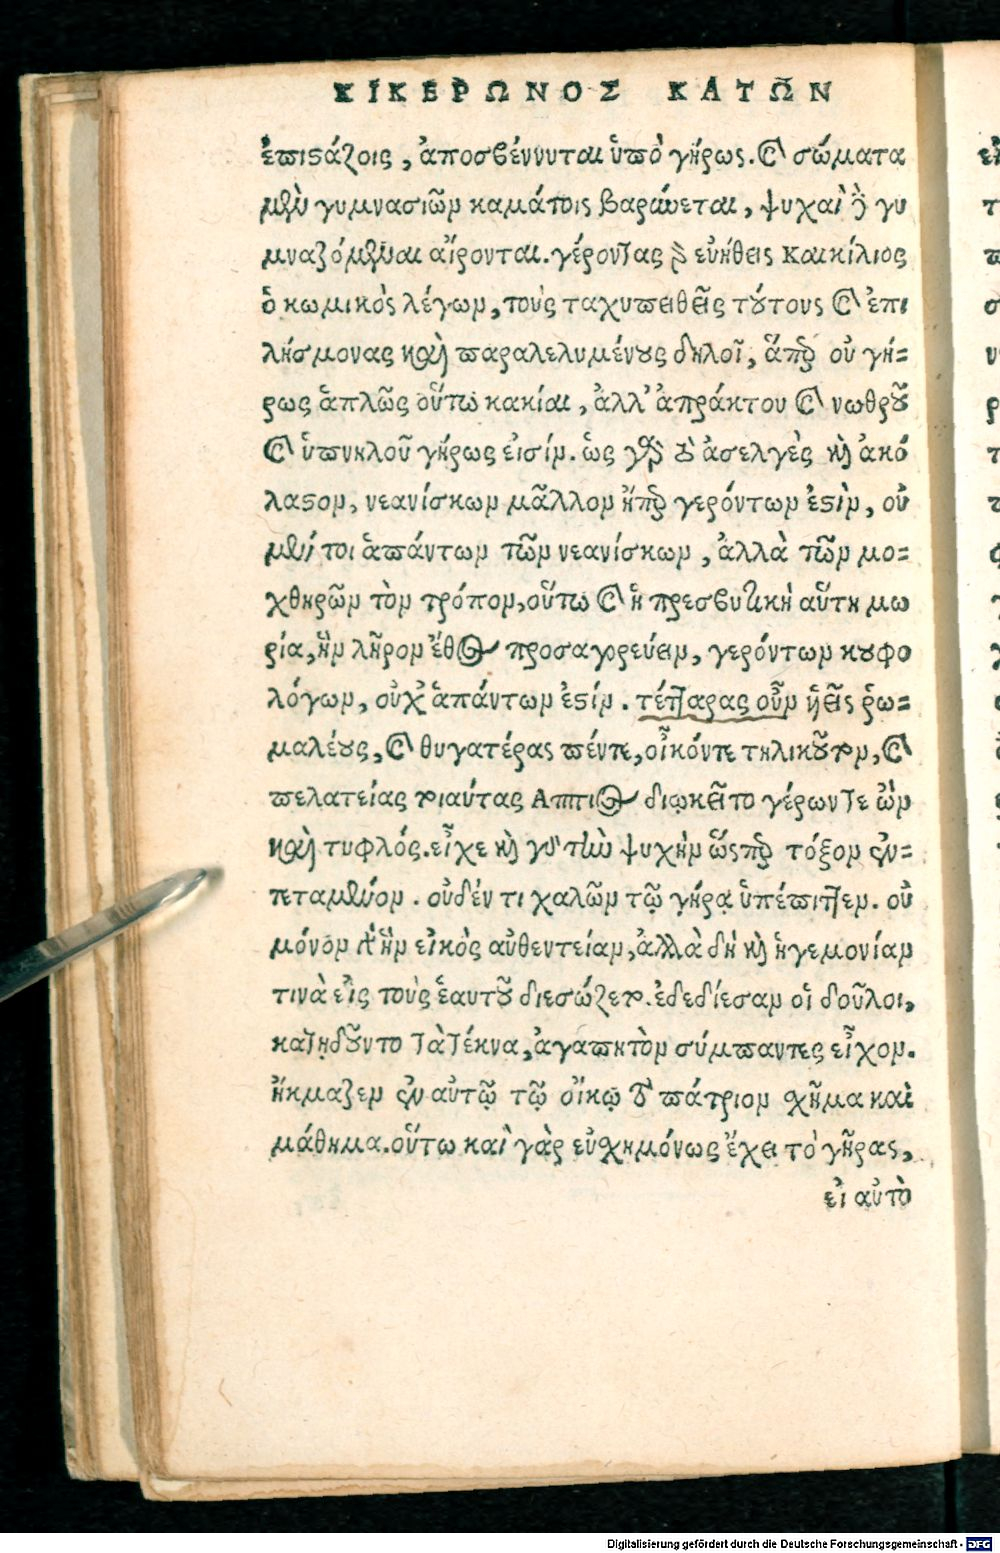 ΚΙΚΕΡΩΝΟΣ ΚΑΤΩΝ
ἐπιστάζοις, ἀποσβέννυται ὑπὸ γήρως. καὶ σώματα
μὲν γυμνασιῶν καμάτοις βαρύνεται, ψυχαὶ δὲ γυ
μναζόμεναι αἴρονται. γέροντας δὲ εὐήθεις Καικίλιος
ὁ κωμικὸς λέγων, τοὺς ταχυπειθεῖς τούτους καὶ ἐπι
λήσμονας καὶ παραλελυμένους δηλοῖ, ἅπερ οὐ γή-
ρως ἁπλῶς οὕτω κακίαι, ἀλλ' ἀπράκτου καὶ νωθροῦ
καὶ ὑπνηλοῦ γήρως εἰσίν. ὡς γὰρ τὸ ἀσελγὲς καὶ ἀκό
λαστον, νεανίσκων μᾶλλον ἤπερ γερόντων ἐστὶν, οὐ
μέν τοι ἁπάντων τῶν νεανίσκων, ἀλλὰ τῶν μο-
χθηρῶν τὸν τρόπον, οὕτω καὶ ἡ πρεσβυτικὴ αὕτη μω
ρία, ἣν λῆρον ἔθος προσαγορεύειν, γερόντων κουφο
λόγων, οὐχ ἁπάντων ἐστίν. τέτταρας οὖν ἡεῖς ῥω-
μαλέους, καὶ θυγατέρας πέντε, οἶκόν τε τηλικοῦτον, καὶ
πελατείας τοιαύτας Ἄππιος διῳκεῖτο γέρων τε ὢν
καὶ τυφλός. εἶχε καὶ γὰρ τὴν ψυχὴν ὥσπερ τόξον ἐν-
τεταμένον. οὐδέν τι χαλῶν τῷ γήρᾳ ὑπέπιπτεν. οὐ
μόνον τὴν εἰκὸς αὐθεντείαν, ἀλλὰ δὴ καὶ ἡγεμονίαν
τινὰ εἰς τοὺς ἑαυτοῦ διεσώζετο. ἐδεδίεσαν οἱ δοῦλοι,
κατῃδοῦντο τὰ τέκνα, ἀγαπητὸν σύμπαντες εἶχον.
ἤκμαζεν ἐν αὐτῷ τῷ οἴκῳ τὸ πάτριον σχῆμα καὶ
μάθημα. οὕτω καὶ γὰρ εὐσχημόνως ἔχει τὸ γῆρας,
εἰ αὐτὸ
Digitalisierung gefördert durch die Deutsche Forschungsgemeinschaft - DFG